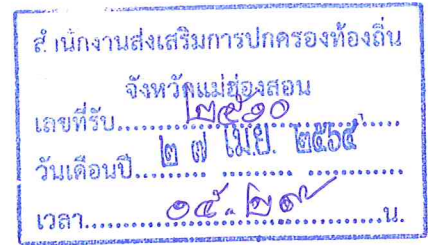 สำนักงานส่งเสริมการปกครองท้องถิ่น
จังหวัดแม่ฮ่องสอน
เลขที่รับ.....๒๕๑๐
วันเดือนปี.....๒ ๗ เม.ย. ๒๕๖๔
เวลา.....น.